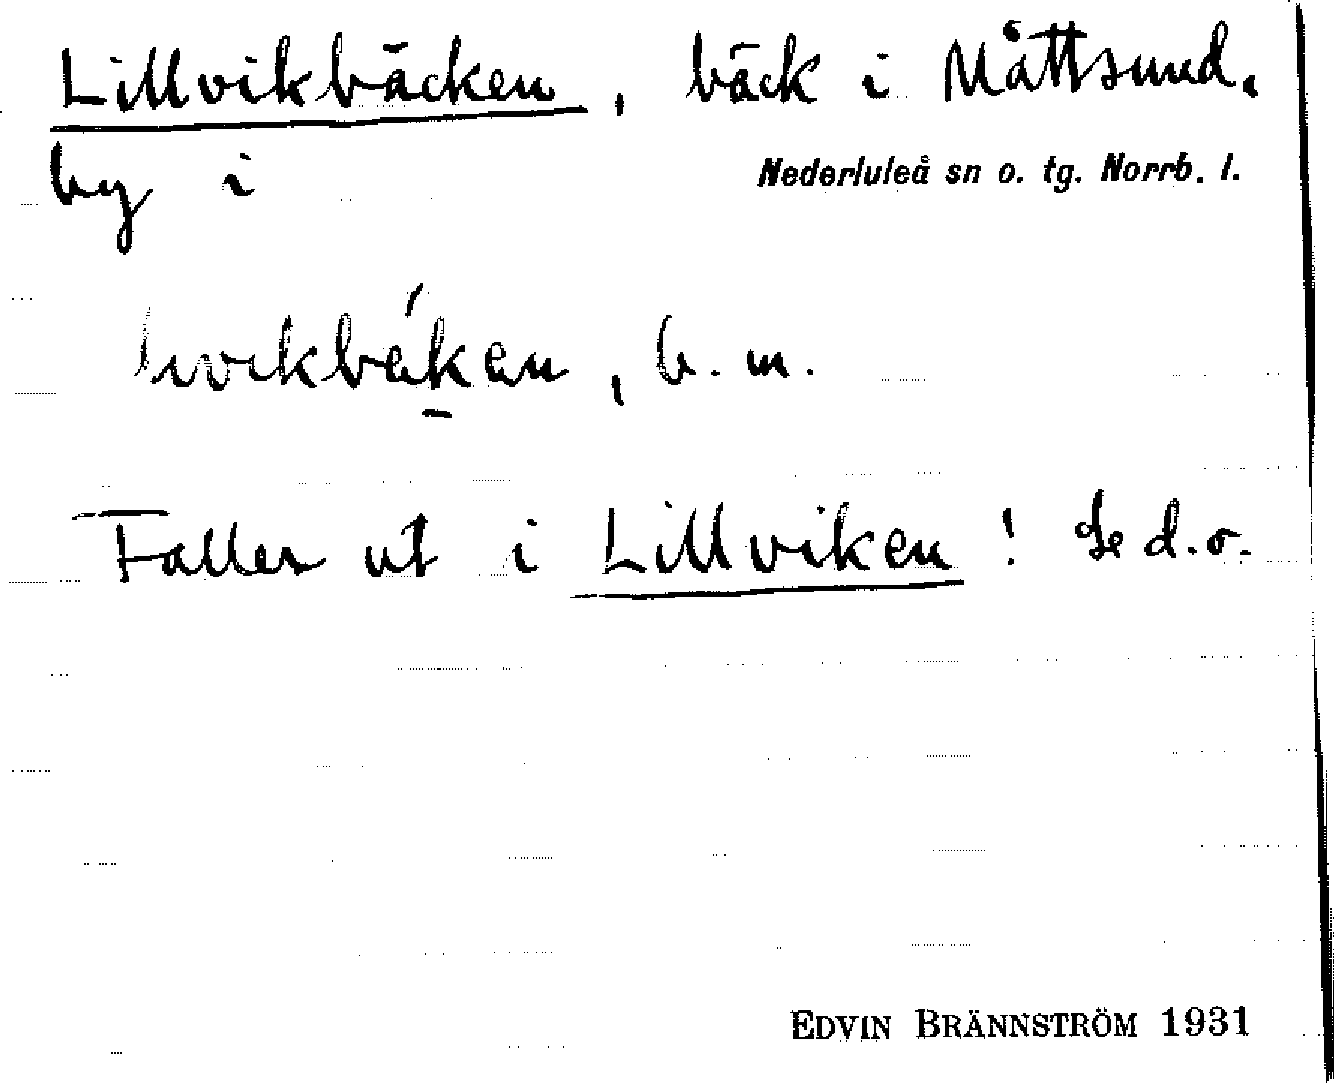 Lillvikbäcken, bäck i Måttsund,
by i Nederluleå sn o. tg. Norrb. l.
b. m.
Faller ut i Lillviken! Se d.o.
EDVIN BRÄNNSTRÖM 1931